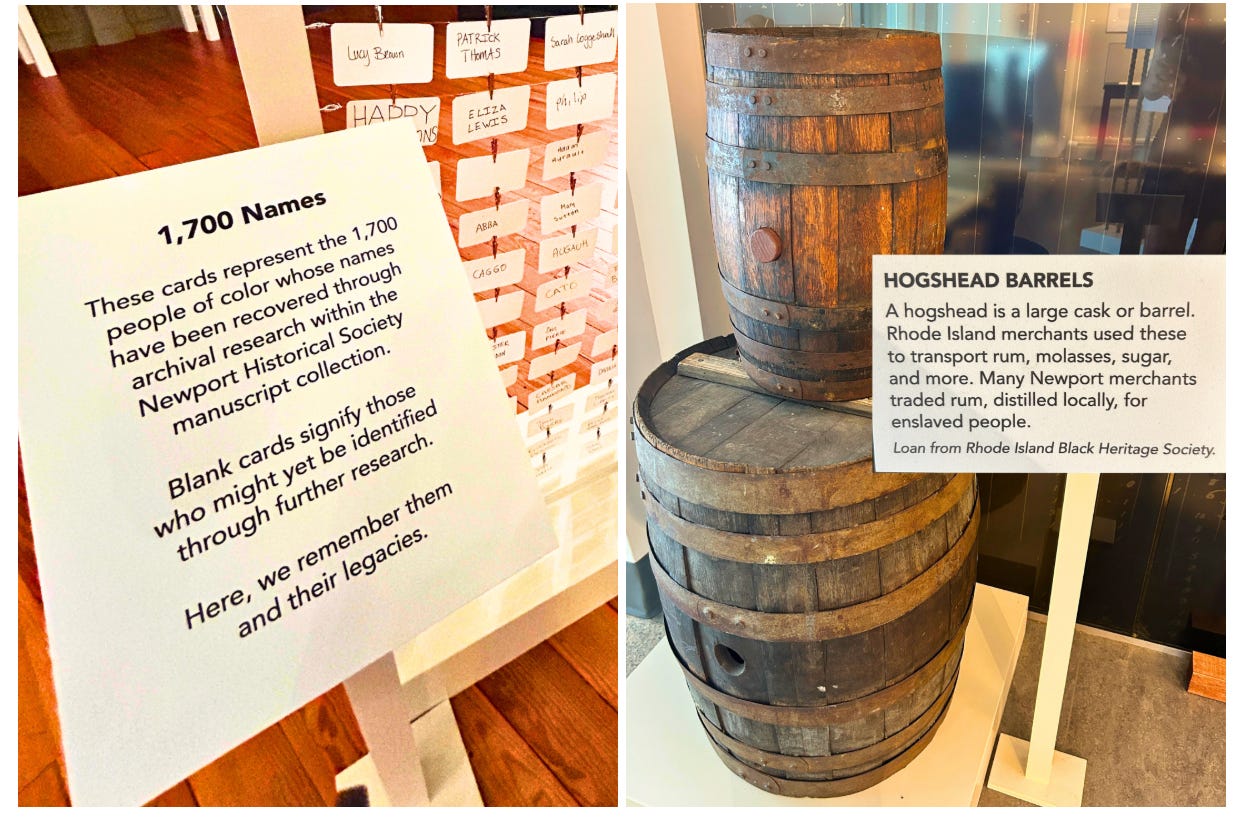 Lucy Brown
PATRICK
THOMAS
Sarah Coggeshall
HAPPY
ELIZA
LEWIS
Philip
ABBA
Mary
CAGGO
CATO
1,700 Names
These cards represent the 1,700
people of color whose names
have been recovered through
archival research within the
Newport Historical Society
manuscript collection.
Blank cards signify those
who might yet be identified
through further research.
Here, we remember them
and their legacies.
HOGSHEAD BARRELS
A hogshead is a large cask or barrel.
Rhode Island merchants used these
to transport rum, molasses, sugar,
and more. Many Newport merchants
traded rum, distilled locally, for
enslaved people.
Loan from Rhode Island Black Heritage Society.